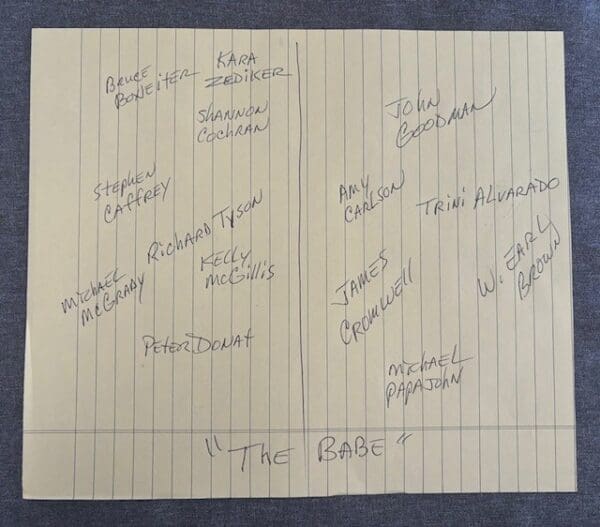 Bruce
Boxeiter
Kara
Zediker
Shannon
Cochran
Stephen
Caffrey
Richard Tyson
Michael
McGrady
Kelly
McGillis
Peter Donat
John
Goodman
Amy
Carlson
Trini Alvarado
James
Cromwell
W. Earl
Brown
Michael
Papajohn
"The Babe"